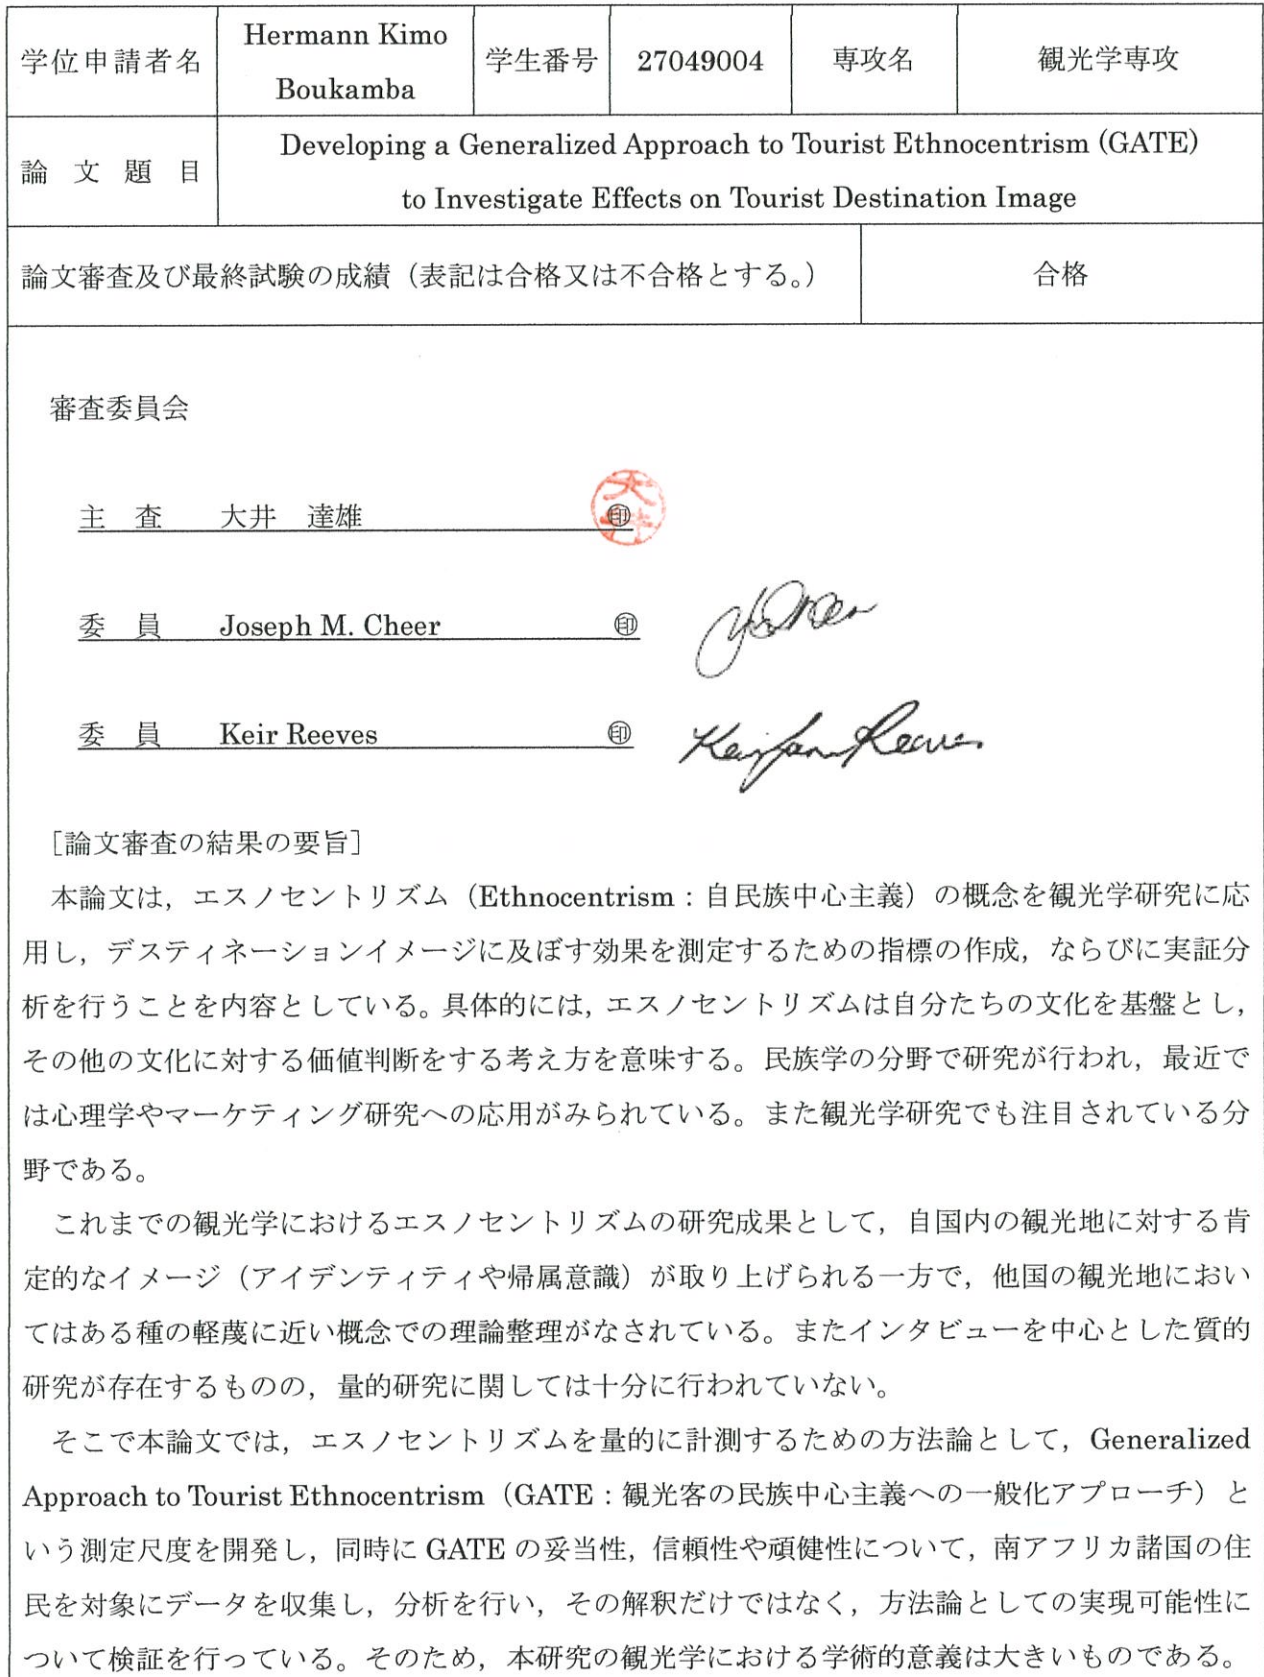 学位申請者名 Hermann Kimo Boukamba 学生番号 27049004 専攻名 観光学専攻
論文題目 Developing a Generalized Approach to Tourist Ethnocentrism (GATE)
to Investigate Effects on Tourist Destination Image
論文審査及び最終試験の成績（表記は合格又は不合格とする。） 合格
審査委員会
主査 大井 達雄 ㊞
委員 Joseph M. Cheer ㊞
委員 Keir Reeves ㊞
［論文審査の結果の要旨］
本論文は，エスノセントリズム（Ethnocentrism：自民族中心主義）の概念を観光学研究に応
用し，デスティネーションイメージに及ぼす効果を測定するための指標の作成，ならびに実証分
析を行うことを内容としている。具体的には，エスノセントリズムは自分たちの文化を基盤とし，
その他の文化に対する価値判断をする考え方を意味する。民族学の分野で研究が行われ，最近で
は心理学やマーケティング研究への応用がみられている。また観光学研究でも注目されている分
野である。
これまでの観光学におけるエスノセントリズムの研究成果として，自国内の観光地に対する肯
定的なイメージ（アイデンティティや帰属意識）が取り上げられる一方で，他国の観光地におい
てはある種の軽蔑に近い概念での理論整理がなされている。またインタビューを中心とした質的
研究が存在するものの，量的研究に関しては十分に行われていない。
そこで本論文では，エスノセントリズムを量的に計測するための方法論として，Generalized
Approach to Tourist Ethnocentrism（GATE：観光客の民族中心主義への一般化アプローチ）と
いう測定尺度を開発し，同時に GATE の妥当性，信頼性や頑健性について，南アフリカ諸国の住
民を対象にデータを収集し，分析を行い，その解釈だけではなく，方法論としての実現可能性に
ついて検証を行っている。そのため，本研究の観光学における学術的意義は大きいものである。